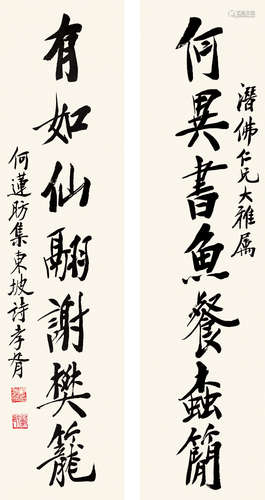 何異書魚餐蠹簡
潛佛仁兄大雅属
有如仙翮謝樊籠
何蓮舫集東坡詩孝胥